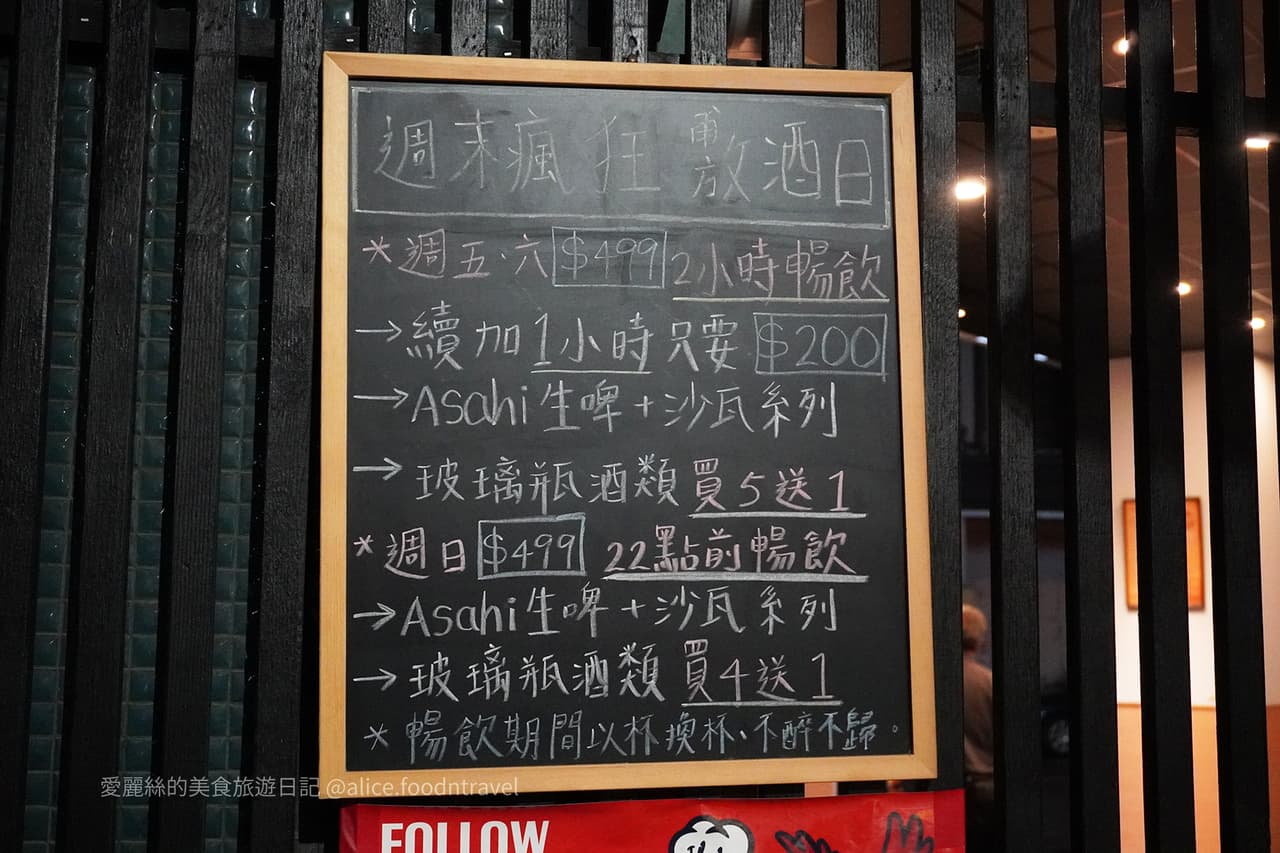 週末瘋狂敵酒日
*週五、六 $499 2小時暢飲
→續加1小時只要 $200
→Asahi生啤+沙瓦系列
→玻璃瓶酒類買5送1
*週日 $499 22點前暢飲
→Asahi生啤+沙瓦系列
→玻璃瓶酒類買4送1
*暢飲期間以杯換杯、不醉不歸。
愛麗絲的美食旅遊日記 @alice.foodntravel
FOLLOW